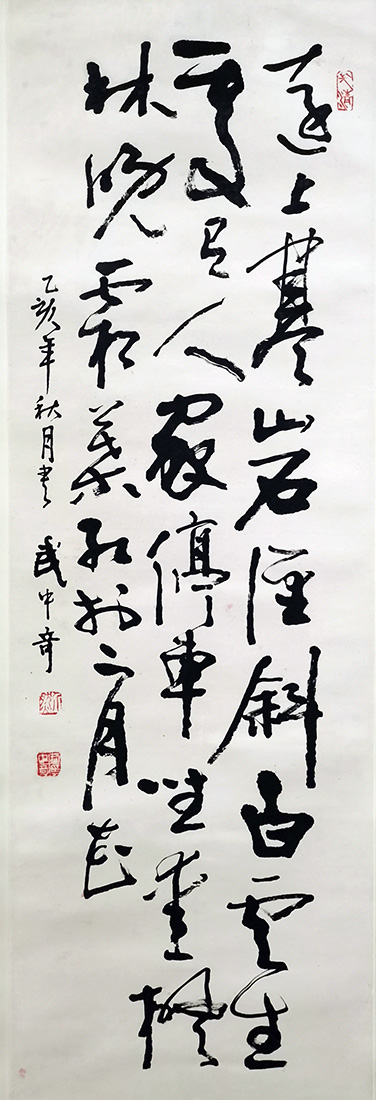 遠上寒山石徑斜白雲生
處有人家停車坐愛楓
林晚霜葉紅於二月花
乙亥年秋月書 武中奇